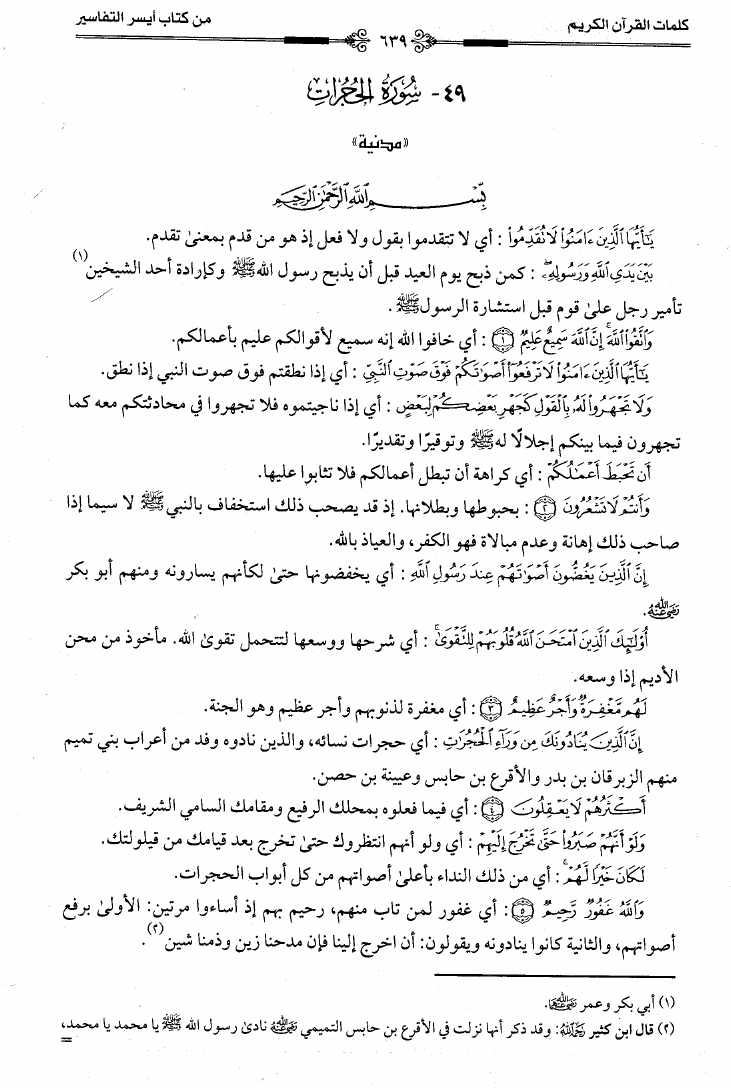 كلمات القرآن الكريم
٦٣٩
من كتاب أيسر التفاسير
٤٩- سُورَةُ الحُجُرَاتِ
«مدنية»
بِسْمِ اللَّهِ الرَّحْمَٰنِ الرَّحِيمِ
يَٰٓأَيُّهَا ٱلَّذِينَ ءَامَنُواْ لَا تُقَدِّمُواْ : أي لا تتقدموا بقول ولا فعل إذ هو من قدم بمعنىٰ تقدم.
بَيْنَ يَدَيِ ٱللَّهِ وَرَسُولِهِۦۖ : كمن ذبح يوم العيد قبل أن يذبح رسول الله ﷺ وكإرادة أحد الشيخين(١)
تأمير رجل علىٰ قوم قبل استشارة الرسول ﷺ.
وَٱتَّقُواْ ٱللَّهَۚ إِنَّ ٱللَّهَ سَمِيعٌ عَلِيمٞ ۝١ : أي خافوا الله إنه سميع لأقوالكم عليم بأعمالكم.
يَٰٓأَيُّهَا ٱلَّذِينَ ءَامَنُواْ لَا تَرْفَعُوٓاْ أَصْوَٰتَكُمْ فَوْقَ صَوْتِ ٱلنَّبِيِّ : أي إذا نطقتم فوق صوت النبي إذا نطق.
وَلَا تَجْهَرُواْ لَهُۥ بِٱلْقَوْلِ كَجَهْرِ بَعْضِكُمْ لِبَعْضٍ : أي إذا ناجيتموه فلا تجهروا في محادثتكم معه كما
تجهرون فيما بينكم إجلالًا له ﷺ وتوقيرًا وتقديرًا.
أَن تَحْبَطَ أَعْمَٰلُكُمْ : أي كراهة أن تبطل أعمالكم فلا تثابوا عليها.
وَأَنتُمْ لَا تَشْعُرُونَ ۝٢ : بحبوطها وبطلانها. إذ قد يصحب ذلك استخفاف بالنبي ﷺ لا سيما إذا
صاحب ذلك إهانة وعدم مبالاة فهو الكفر، والعياذ بالله.
إِنَّ ٱلَّذِينَ يَغُضُّونَ أَصْوَٰتَهُمْ عِندَ رَسُولِ ٱللَّهِ : أي يخفضونها حتىٰ لكأنهم يسارونه ومنهم أبو بكر
رضي الله عنه.
أُوْلَٰٓئِكَ ٱلَّذِينَ ٱمْتَحَنَ ٱللَّهُ قُلُوبَهُمْ لِلتَّقْوَىٰۚ : أي شرحها ووسعها لتتحمل تقوىٰ الله. مأخوذ من محن
الأديم إذا وسعه.
لَهُم مَّغْفِرَةٞ وَأَجْرٌ عَظِيمٌ ۝٣ : أي مغفرة لذنوبهم وأجر عظيم وهو الجنة.
إِنَّ ٱلَّذِينَ يُنَادُونَكَ مِن وَرَآءِ ٱلْحُجُرَٰتِ : أي حجرات نسائه، والذين نادوه وفد من أعراب بني تميم
منهم الزبرقان بن بدر والأقرع بن حابس وعيينة بن حصن.
أَكْثَرُهُمْ لَا يَعْقِلُونَ ۝٤ : أي فيما فعلوه بمحلك الرفيع ومقامك السامي الشريف.
وَلَوْ أَنَّهُمْ صَبَرُواْ حَتَّىٰ تَخْرُجَ إِلَيْهِمْ : أي ولو أنهم انتظروك حتىٰ تخرج بعد قيامك من قيلولتك.
لَكَانَ خَيْرٗا لَّهُمْۚ : أي من ذلك النداء بأعلىٰ أصواتهم من كل أبواب الحجرات.
وَٱللَّهُ غَفُورٞ رَّحِيمٞ ۝٥ : أي غفور لمن تاب منهم، رحيم بهم إذ أساءوا مرتين: الأولىٰ برفع
أصواتهم، والثانية كانوا ينادونه ويقولون: أن اخرج إلينا فإن مدحنا زين وذمنا شين(٢).
(١) أبي بكر وعمر رضي الله عنهما.
(٢) قال ابن كثير رحمه الله: وقد ذكر أنها نزلت في الأقرع بن حابس التميمي رضي الله عنه نادىٰ رسول الله ﷺ يا محمد يا محمد، =